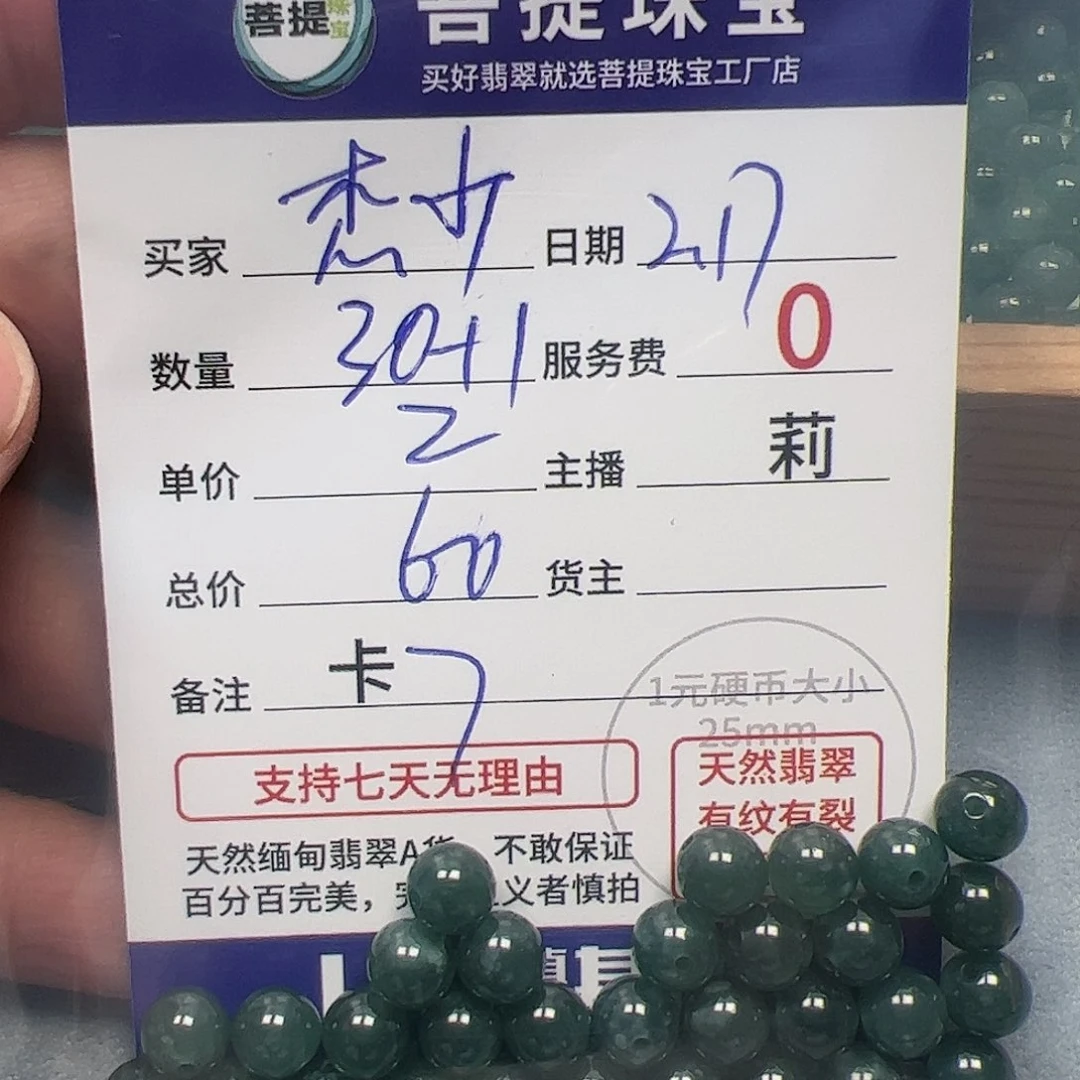 菩提珠宝
菩提珠宝
买好翡翠就选菩提珠宝工厂店
买家 日期 2.17
数量 30+11 服务费 0
单价 2 主播 莉
总价 60 货主
备注 卡 7
1元硬币大小
25mm
支持七天无理由
天然翡翠
有纹有裂
天然缅甸翡翠A货 不敢保证
百分百完美，完 义者慎拍